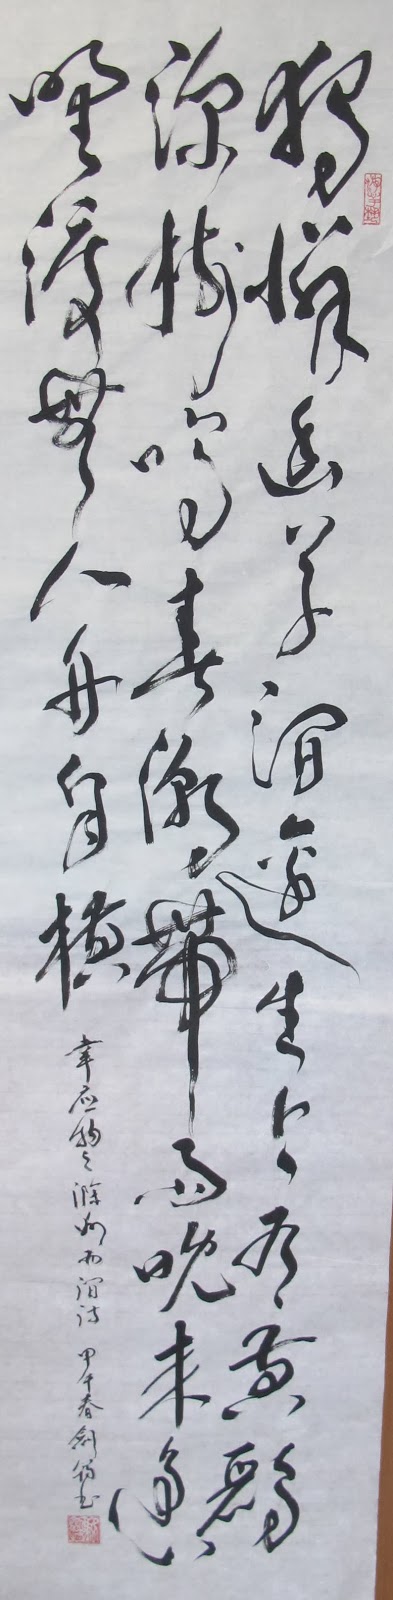 獨憐幽草澗邊生上有黃鸝
深樹鳴春潮帶雨晚來急
野渡無人舟自橫
韋應物之滁州西澗詩 甲午春劍翁書